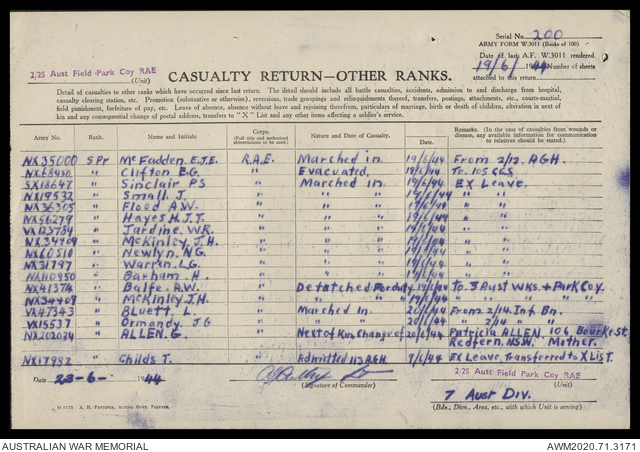 Serial No. 200
ARMY FORM W.3011 (Books of 100)
Date of last A.F. W.3011 rendered
19/6/1944 Number of sheets
attached to this return
2/25 Aust Field Park Coy RAE
(Unit)
CASUALTY RETURN—OTHER RANKS.
Detail of casualties to other ranks which have occurred since last return. The detail should include all battle casualties, accidents, admission to and discharge from hospital,
casualty clearing station, etc. Promotion (substantive or otherwise), reversions, trade groupings and relinquishments thereof, transfers, postings, attachments, etc., courts-martial,
field punishment, forfeiture of pay, etc. Leave of absence, absence without leave and rejoining therefrom, particulars of marriage, birth or death of children, alteration in next of
kin and any consequential change of postal address, transfers to "X" List and any other items affecting a soldier's service.
Army No. Rank. Name and Initials. Corps. (Full title and authorized abbreviations to be used). Nature and Date of Casualty. Date. Remarks. (In the case of casualties from wounds or disease, any available information for communication to relatives should be stated.)
NX35000 Spr McFadden E.J.E. R.A.E. Marched in 19/6/44 From 2/12. AGH.
NX68450 " Clifton E.G. " Evacuated 19/6/44 To. 105 CCS
SX18647 " Sinclair P.S " Marched in 19/6/44 Ex Leave.
NX19532 " Small. J. " " " 19/6/44 " "
NX36305 " Flood A.W. " " " 19/6/44 " "
NX46279 " Hayes H.J.T. " " " 19/6/44 " "
VX123784 " Jardine W.R. " " " 19/6/44 " "
NX34909 " McKinley J.H. " " " 19/6/44 " "
NX60510 " Newlyn. N.G. " " " 19/6/44 " "
NX31797 " Warren. L.G. " " " 19/6/44 " "
NX110950 " Barham. H. " " " 19/6/44 " "
NX41374 " Balfe. A.W. " Detatched for duty 19/6/44 To. 3 Aust Wks. & Park Coy.
" McKinley J.H. " " " " 19/6/44 " " " "
VX47343 " Bluett. L. " Marched In. 20/6/44 From 2/14. Inf. Bn.
VX15537 " Ormandy. J G " " " 20/6/44 " 2/14 " "
NX202034 " ALLEN. G. " Next of Kin Change of 20/6/44 Patricia ALLEN 106, Bourke St.
Redfern. NSW. Mother.
NX17982 " Childs T. " Admitted 113 AGH 7/6/44 Ex Leave, Transferred to X List.
Date 23-6- 1944
(Signature of Commander)
2/25 Aust Field Park Coy RAE
7 Aust Div.
(Bde., Divn., Area, etc., with which Unit is serving)
A. H. Pettifer, Acting Govt. Printer.
AUSTRALIAN WAR MEMORIAL
AWM2020.71.3171